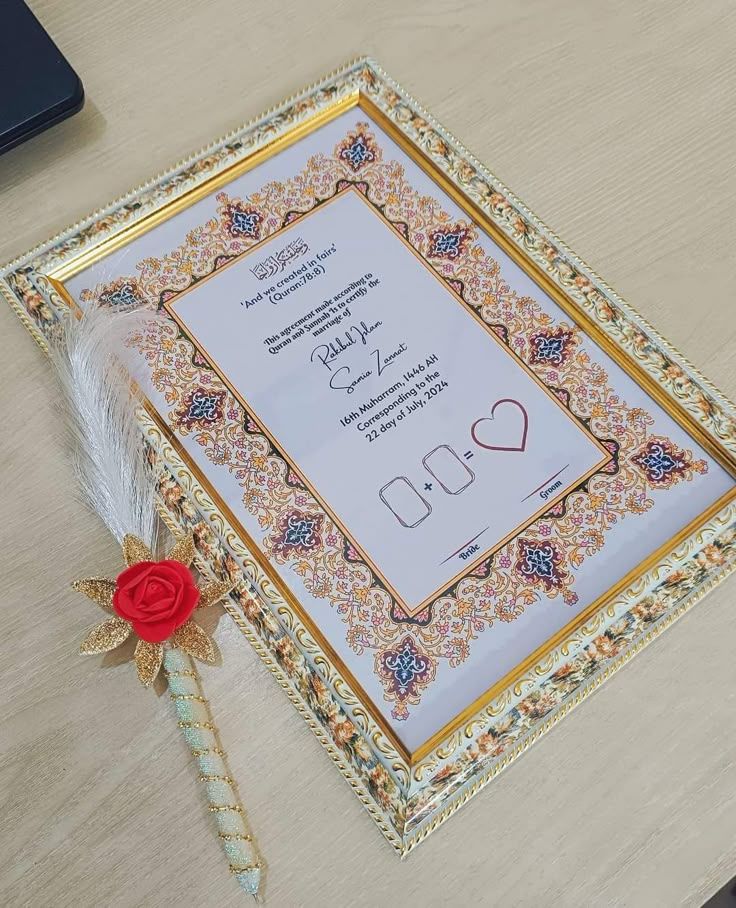 وخلقناكم أزواجا
'And we created in fairs'
(Quran:78:8)
This agreement made according to
Quran and Sunnah 'Is to certify the
marriage of
Rakibul Islam
Zannat
16th Muharram, 1446 AH
Corresponding to the
22 day of July, 2024
+ =
Bride Groom